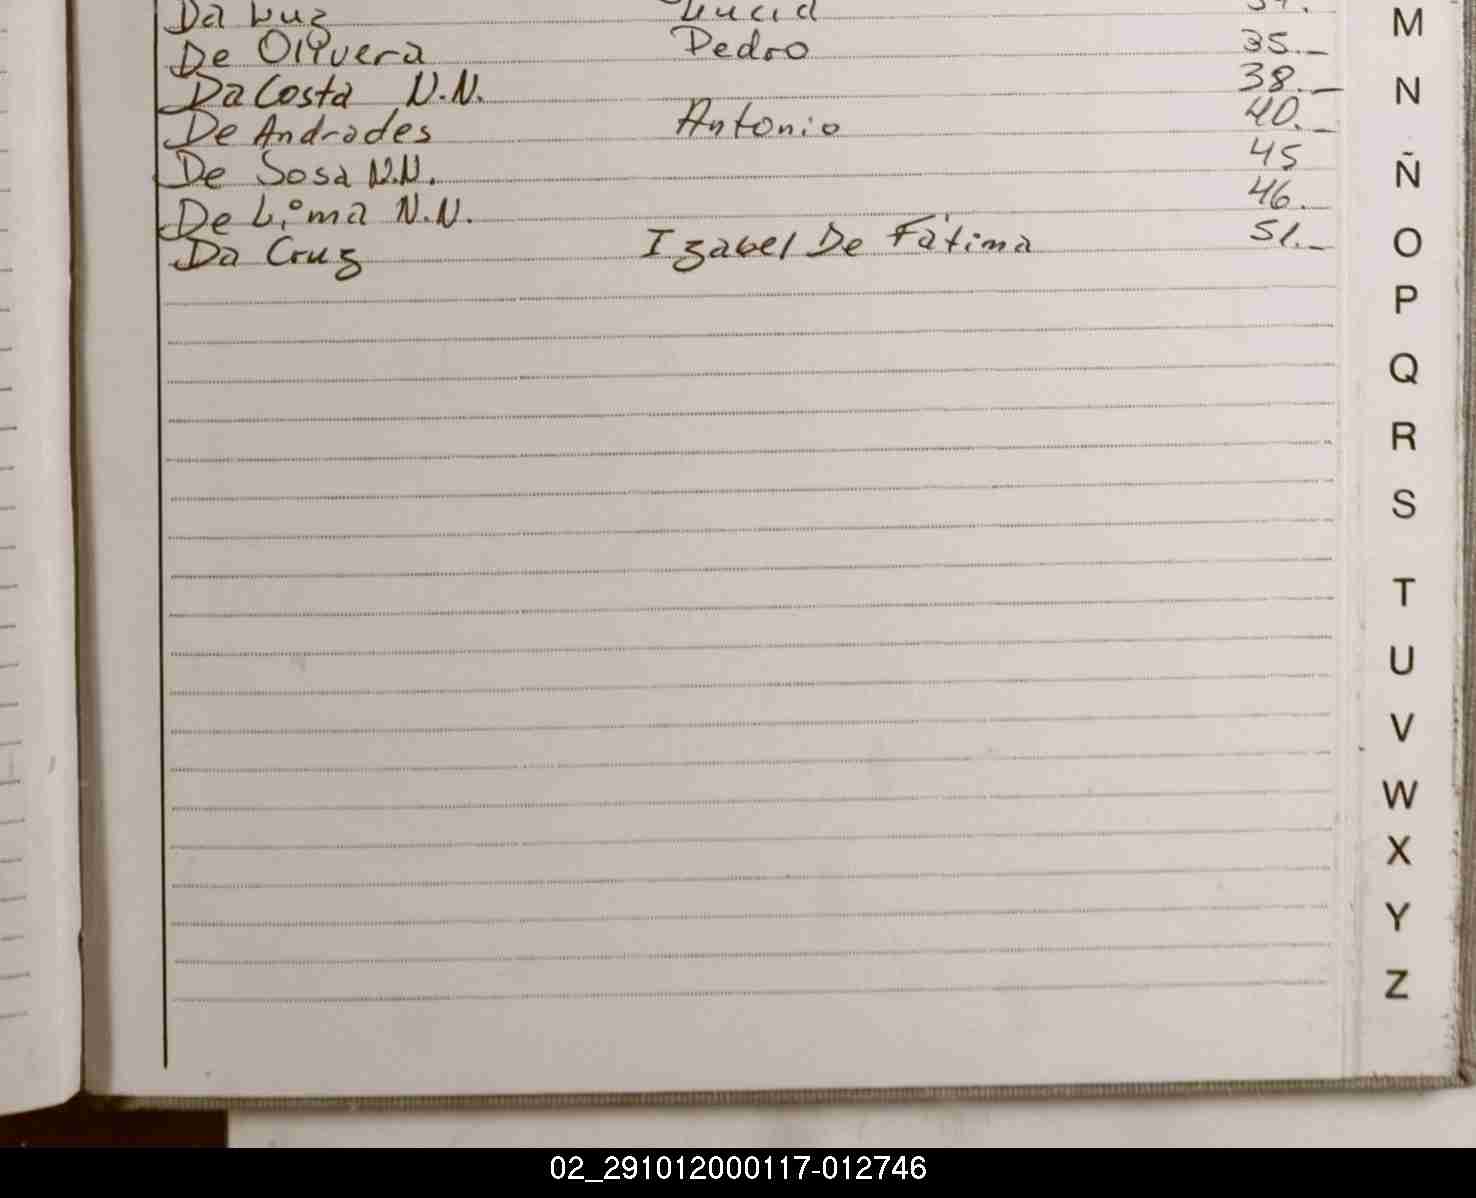 Da Luz Lucia 34.
De Olivera Pedro 35._
Da Costa N.N. 38._
De Andrades Antonio 40._
De Sosa N.N. 45
De Lima N.N. 46.
Da Cruz Izabel De Fátima 51._
M
N
Ñ
O
P
Q
R
S
T
U
V
W
X
Y
Z
02_291012000117-012746